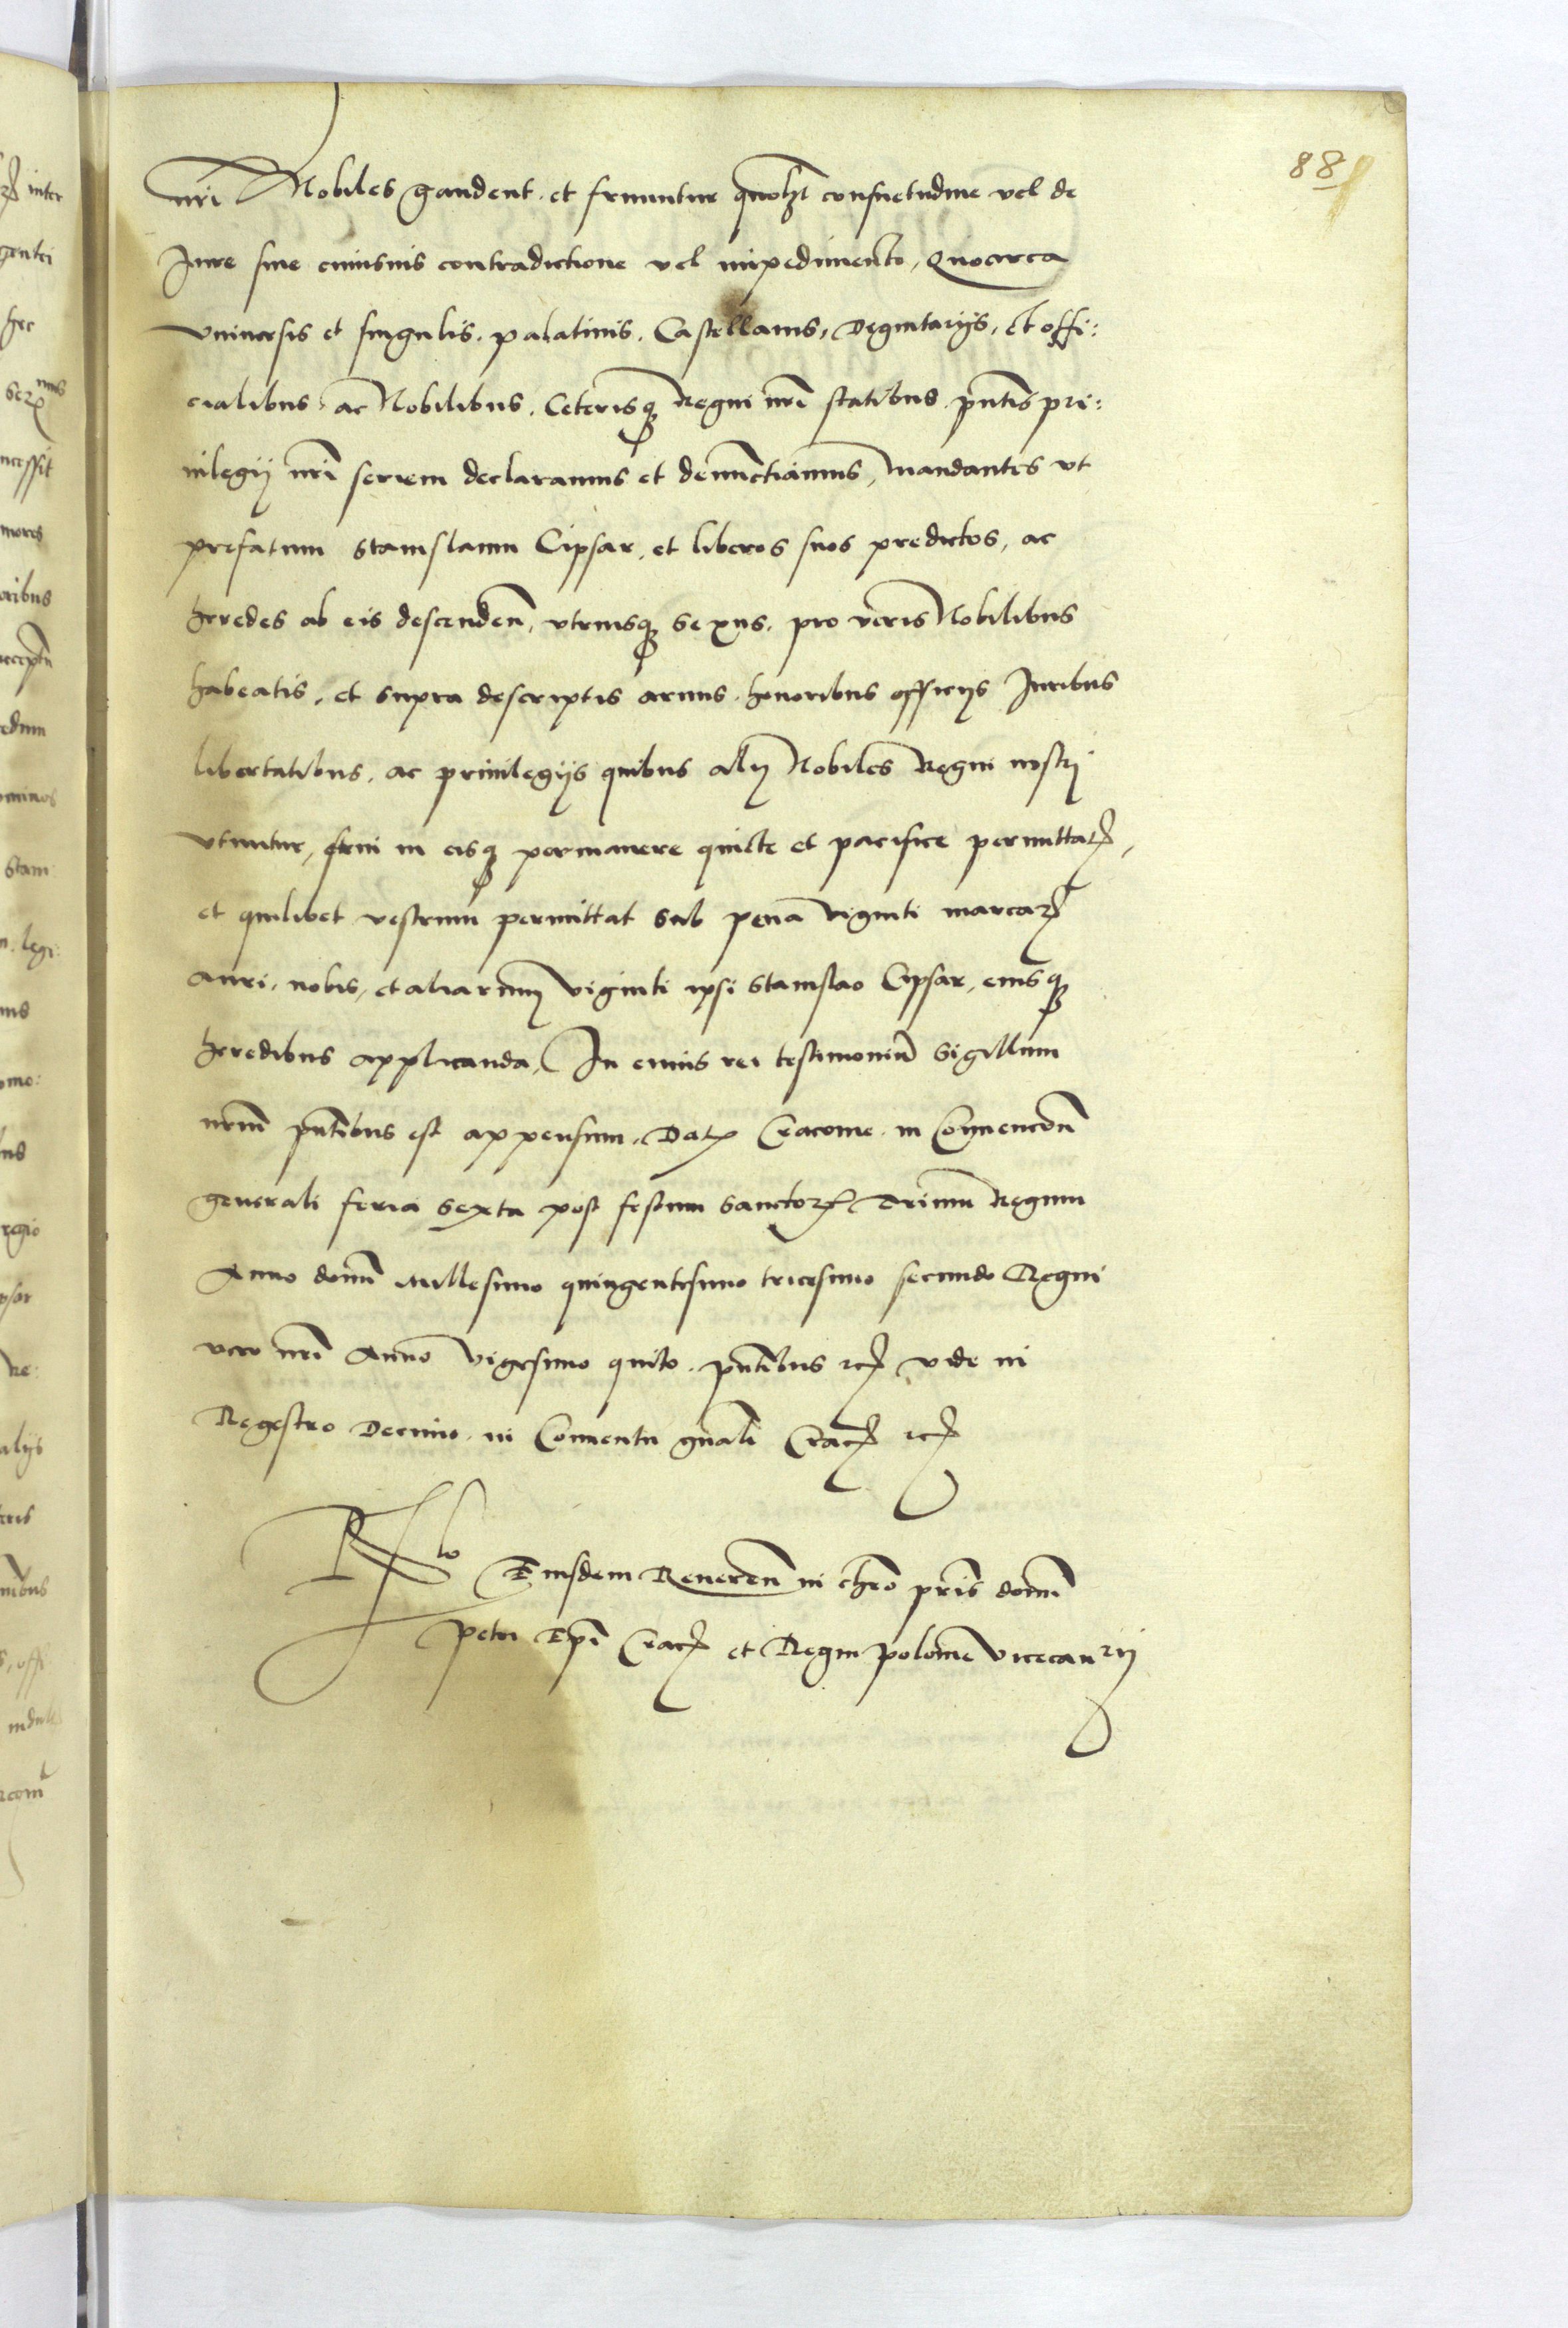 88
nri Nobiles gaudent. et fruuntur quoḿlꝫ consuetudine vel de
Jure sine cuiusuis contradictione vel impedimento, Quocirca
vniuersis et singulis. palatinis. Castellanis, Degnitarijs, et offi:
cialibus. ac Nobilibus. Ceterisqꝫ Regni nri statibus pntis pri:
uilegij nri seriem declaramus et denunctiamus, mandantes vt
prefatum Stanislaum Cipsar, et liberos suos predictos, ac
heredes ab eis descenden, vtriusqꝫ sexus. pro veris Nobilibus
habeatis. et supra descriptis armis. honoribus officijs Juribus
libertatibus. ac priuilegijs quibus alij Nobiles Regni nostrj
vtuntur, frui in eisqꝫ permanere quiete et pacifice permittatꝭ,
et quilibet vestrum permittat sub pena viginti marcaꝝ
auri. nobis, et aliarum viginti ipsi Stanislao Cipsar, eiusqꝫ
heredibus applicanda, In cuius rei testimoniu sigillum
nrm pntibus est appensum. Datꝭ Cracouie. in Conuencōn
generali feria sexta post festum sanctoꝝ Trium Regum
Anno domi Millesimo quingentesimo tricesimo secundo Regni
vero nri Anno vigesimo quito. pntibus ꝛcꝭ vide in
Regestro Decimo. in Conuentu gnali Cracꝭ ꝛcꝭ
Rlo Eiusdem Reueren in chro pris domi
Petri Epi Cracꝭ et Regni polonie vicecanrij
nter
gentei
hec
ncessit
mores
oribus
edum
ominos
Stani
legi:
mo:
regio
psar
alijs
offi